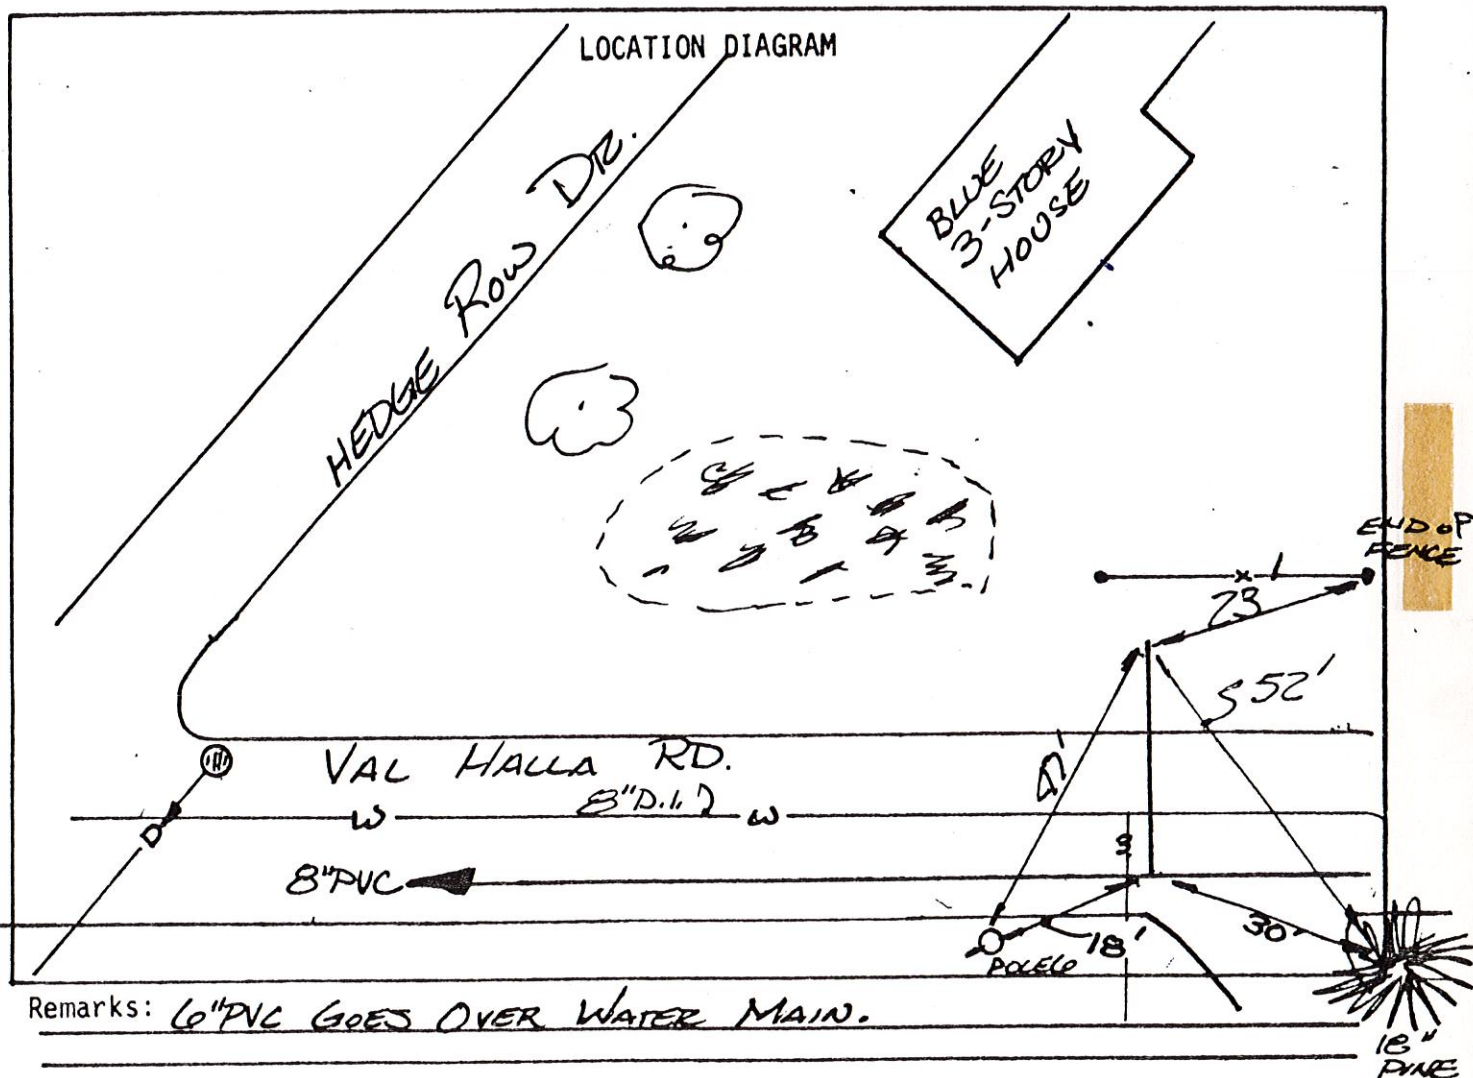 LOCATION DIAGRAM
HEDGE ROW DR.
BLUE
3-STORY
HOUSE
END OF
FENCE
23'
52'
47'
VAL HALLA RD.
8"D.I.
W
W
D
8"PVC
18'
30'
POLE 6
Remarks: 6"PVC GOES OVER WATER MAIN.
18"
PINE